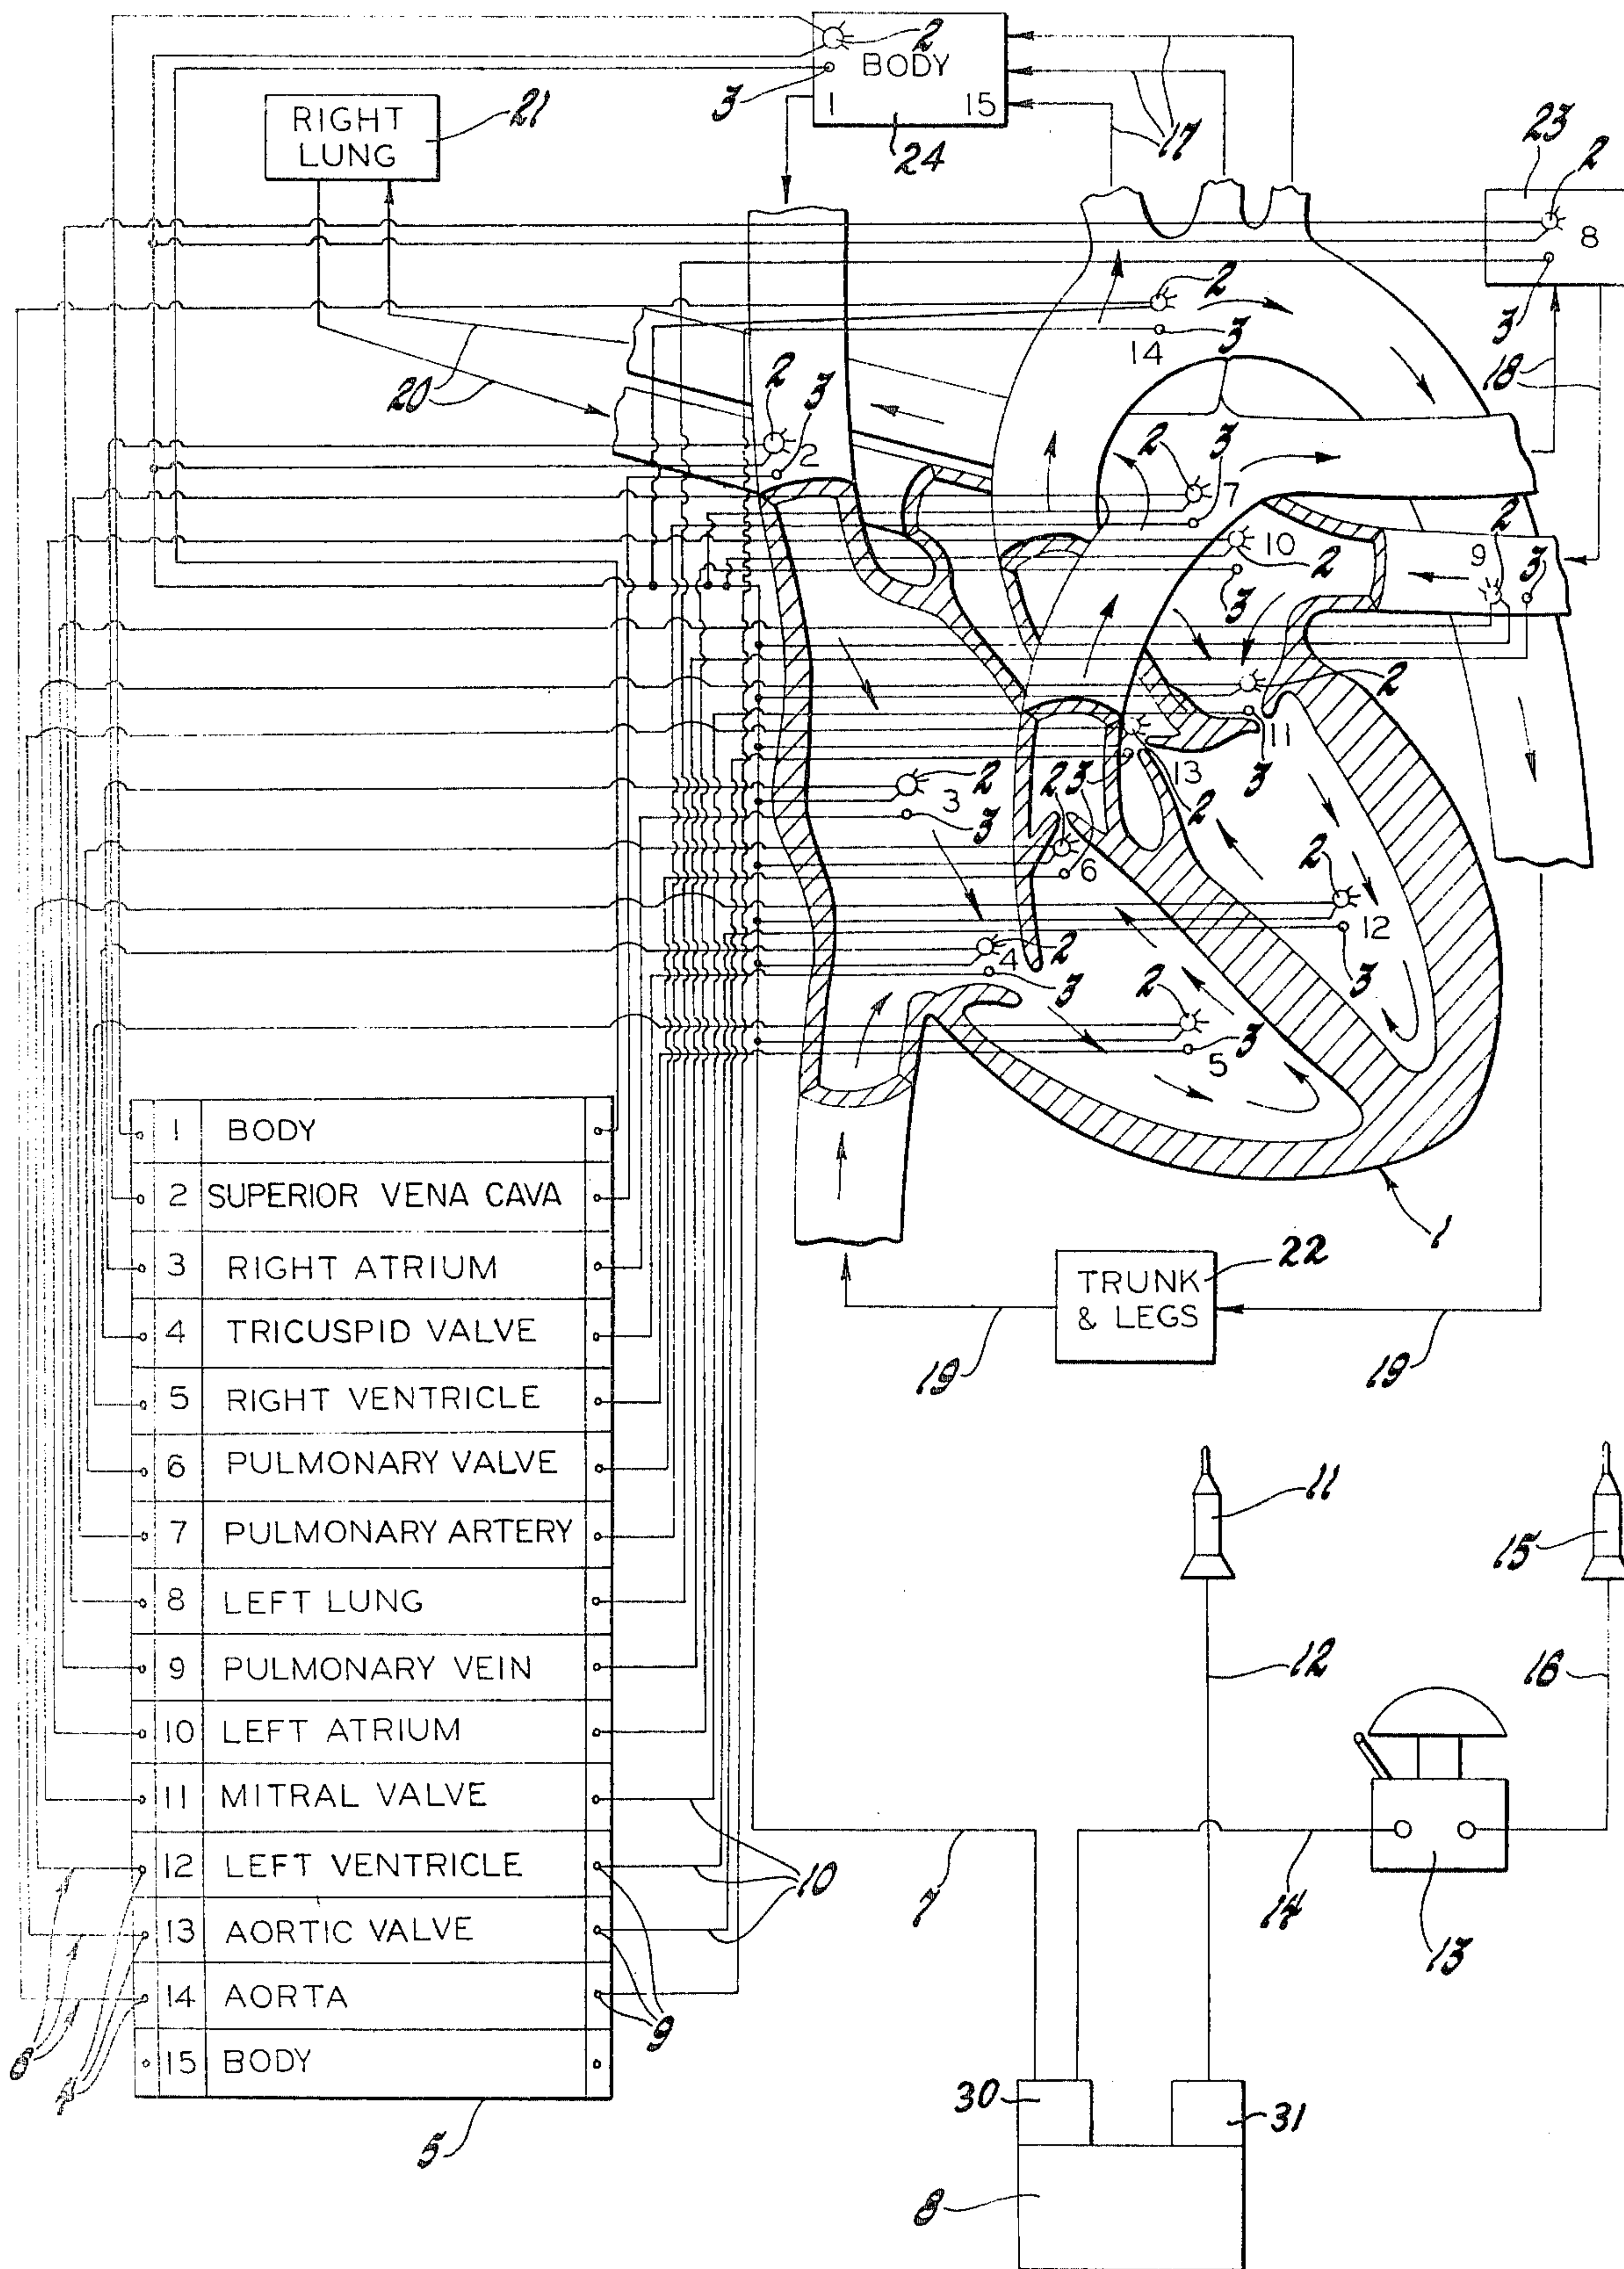 2
BODY
3
1
15
24
17
RIGHT
LUNG
21
23
2
8
3
18
2
3
14
20
2
3
2
2
3
7
10
2
3
2
9
3
2
11
3
13
2
2
3
3
2
3
6
2
12
3
4
2
3
2
5
3
1
TRUNK
& LEGS
22
19
19
1 BODY
2 SUPERIOR VENA CAVA
3 RIGHT ATRIUM
4 TRICUSPID VALVE
5 RIGHT VENTRICLE
6 PULMONARY VALVE
7 PULMONARY ARTERY
8 LEFT LUNG
9 PULMONARY VEIN
10 LEFT ATRIUM
11 MITRAL VALVE
12 LEFT VENTRICLE
13 AORTIC VALVE
14 AORTA
15 BODY
10
9
6
5
11
15
12
16
7
14
13
30
31
8